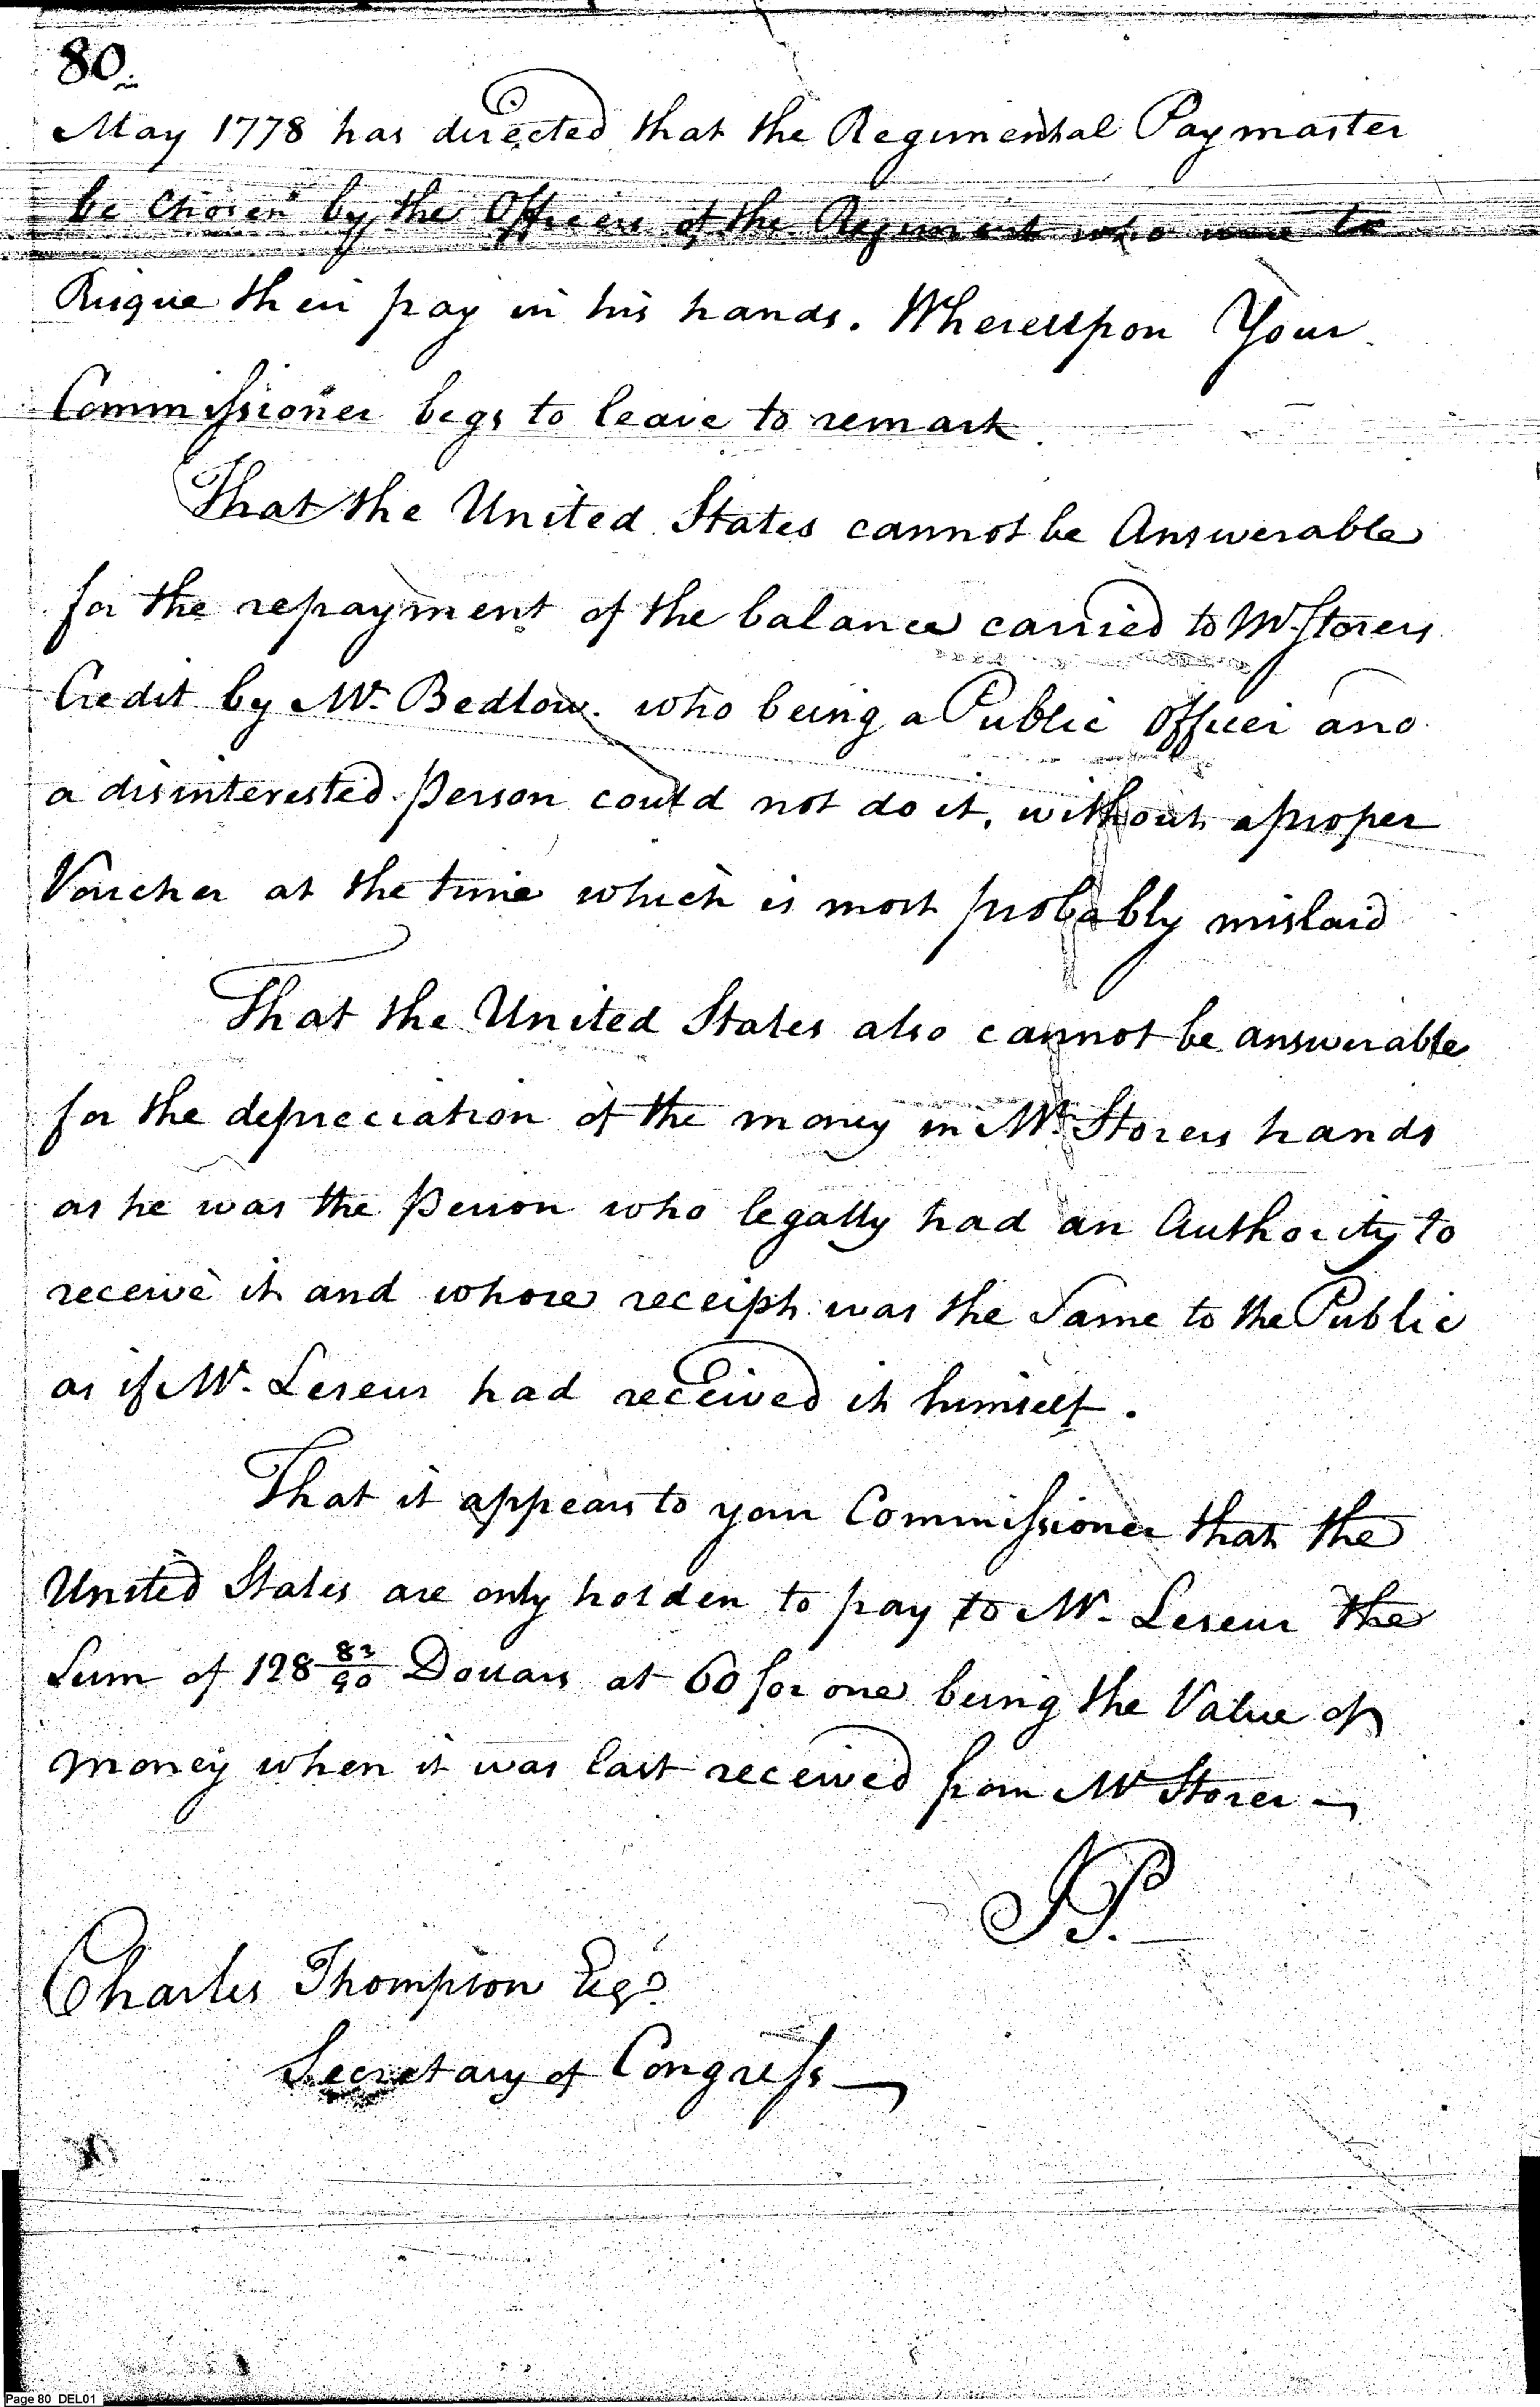 80.
May 1778 has directed that the Regimental Paymaster
be chosen by the Officers of the Regiment who were to
Risque their pay in his hands. Whereupon Your
Commissioner begs to leave to remark
That the United States cannot be Answerable
for the repayment of the balance carried to Mr. Storers
Credit by Mr. Bedlow. who being a Public Officer and
a disinterested person could not do it, without a proper
Voucher at the time which is most probably mislaid
That the United States also cannot be answerable
for the depreciation of the money in Mr. Storers hands
as he was the person who legally had an Authority to
receive it and whose receipt was the Same to the Public
as if Mr. Leseur had received it himself.
That it appears to your Commissioner that the
United States are only holden to pay to Mr. Leseur the
Sum of 128 83/90 Dollars at 60 for one being the Value of
money when it was last received from Mr Storer
JP.
Charles Thompson Esqr.
Secretary of Congress
Page 80 DEL01